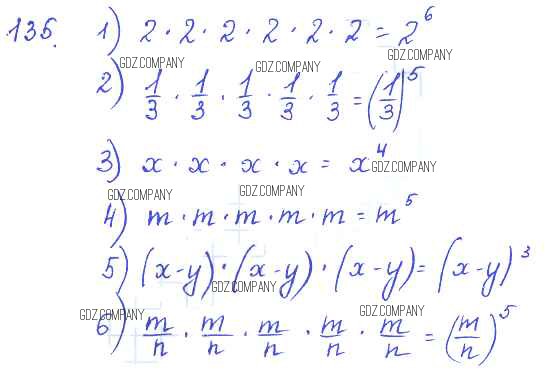 135. 1) 2 · 2 · 2 · 2 · 2 · 2 = 2⁶
GDZ.COMPANY GDZ.COMPANY
2) 1/3 · 1/3 · 1/3 · 1/3 · 1/3 = (1/3)⁵
3) x · x · x · x = x⁴ GDZ.COMPANY
GDZ.COMPANY GDZ.COMPANY
4) m · m · m · m · m = m⁵
5) (x-y) · (x-y) · (x-y) = (x-y)³
GDZ.COMPANY
GDZ.COMPANY GDZ.COMPANY
6) m/n · m/n · m/n · m/n · m/n = (m/n)⁵